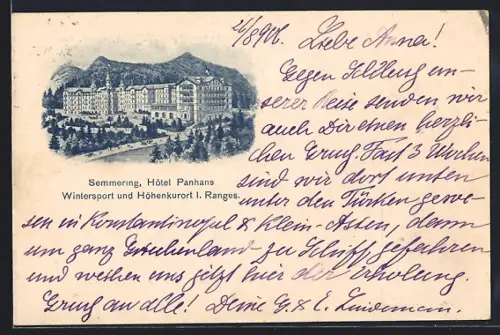 26/8 906. Liebe Anna!
Gegen Schluß un-
serer Reise senden wir
auch Dir einen herzli-
chen Gruß. Fast 3 Wochen
sind wir dort unten
unter den Türken gewe-
sen in Konstantinopel & Klein-Asien, dann
um ganz Griechenland zu Schiff gefahren
und weihen uns jetzt hier der Erholung.
Gruß an alle! Deine G. & E. Lindemann.
Semmering, Hôtel Panhans
Wintersport und Höhenkurort I. Ranges.